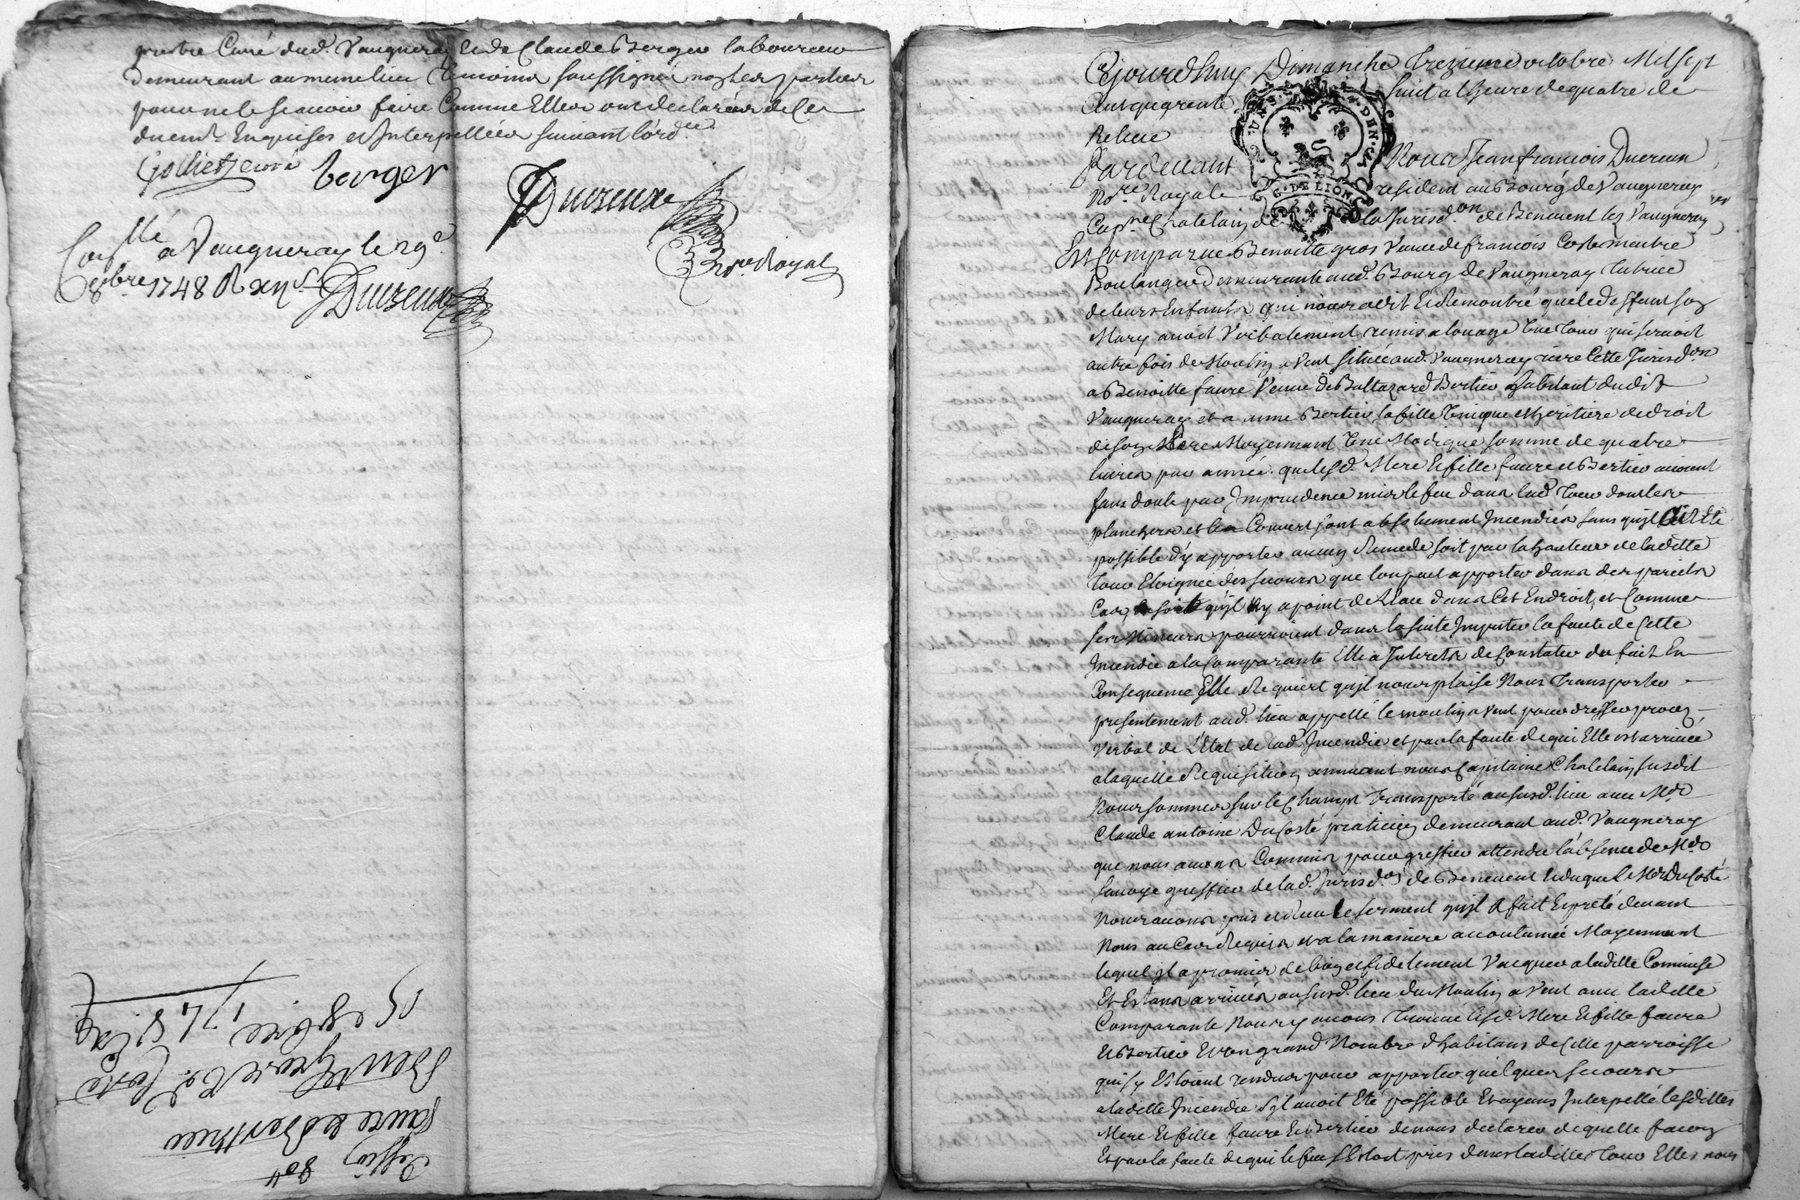 prestre Curé dud. Vaugneray Et de Claude Berger laboureur
demeurant au meme lieu temoins soussignés non les parties
pour ne le scavoir faire Comme Elles ont declaré de ce
duem.t Enquises et Interpellées suivant l'ord.ce
berger
Duvreux
Coll.né a Vaugneray le 29e
8bre 1748 R
N.re Royal
Duvreux
15 8bre 1748
Ben.te Gros V. Coste
faure et Berthier
Cejourdhuy Dimanche Trezieme octobre Mil sept
Cent quarente huit a lheure de quatre de
Relevé
G. DE LION
Pardevant Nous Jean francois Duvreux
No.re Royal resident au Bourg de Vaugneray
Cap.ne Chatelain de la Jurisd.on de Benevent lez Vaugneray
Est Comparue Benoitte gros Veuve de francois Coste maitre
Boulanger Demeurante aud. Bourg de Vaugneray tutrice
de leurs Enfants qui nous a dit Et Remontré que le deffunt son
Mary avoit Verbalement remis a louage Une Tour qui servoit
autre fois de Moulin a Vent située aud. Vaugneray riere cette Jurisd.on
a Benoitte faure Veuve de Baltazard Bertier habitant dudit
Vaugneray et a anne Bertier sa fille Unique et heritiere de droit
de son Pere Moyennant Une Modique somme de quatre
livres par année. que lesd. Mere Et fille faure et Bertier auroient
sans doute par Imprudence mis le feu dans lad. Tour dont les
planchers et le Couvert sont absolument Incendiés sans quil ait Eté
possible d'y apporter aucun Remede soit par la hauteur de laditte
Tour Eloignée des secours que lon peut apporter dans des pareils
Cas soit quil ny a point de l'eau dans Cet Endroit, et Comme
ses Mineurs pourroient dans la suite Imputer la faute de Cette
Incendie a la Comparante Elle a Interets de Constater du fait En
Consequence Elle Requiert quil nous plaise Nous Transporter
presentement aud. lieu appellé le moulin a Vent pour dresser procez
Verbal de L'Etat de lad. Incendie et par la faute de qui Elle est arrivée
a laquelle Requisition annuant nous Capitaine Chatelain susdit
Nous sommes sur le Champs Transporté au susd. lieu avec M.e
Claude antoine DuCosté praticien demeurant aud. Vaugneray
que nous avons Commis pour greffier attendu l'absence de M.e
greffier de lad. Jurisd.on de Benevent Et duquel M.e DuCosté
Nous avons pris et Reçu le serment quil a fait Et preté devant
Nous au Cas Requis et a la maniere accoutumée Moyennant
lequel Il a promis de bien et fidelement Vacquer a laditte Commise
Et Estans arrivés au susd. lieu du Moulin a Vent avec laditte
Comparante Nous y avons Trouvé lesd. Mere Et fille faure
Et Bertier Et un grand Nombre d'habitans de Cette parroisse
qui sy Estoient rendus pour apporter quelques secours
a laditte Incendie Sil avoit Eté possible Et ayans Interpellé lesdittes
Mere Et fille faure Et Bertier de nous declarer de quelle facon
Et par la faute de qui le feu S'Estoit pris dans laditte Tour Elles nous